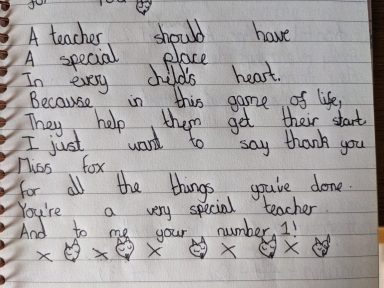 for you
A teacher should have
A special place
In every child's heart.
Because in this game of life,
They help them get their start
I just want to say thank you
Miss Fox
for all the things you've done.
You're a very special teacher.
And to me your number 1!
x x x x x